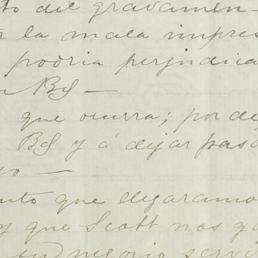 to del gravamen-
la mala impres
podria perjudica
n BS-
que ocurra; por de
BS y á dejar pasa
to-
nto que llegaramo
y que Scott nos g
su negocio servi